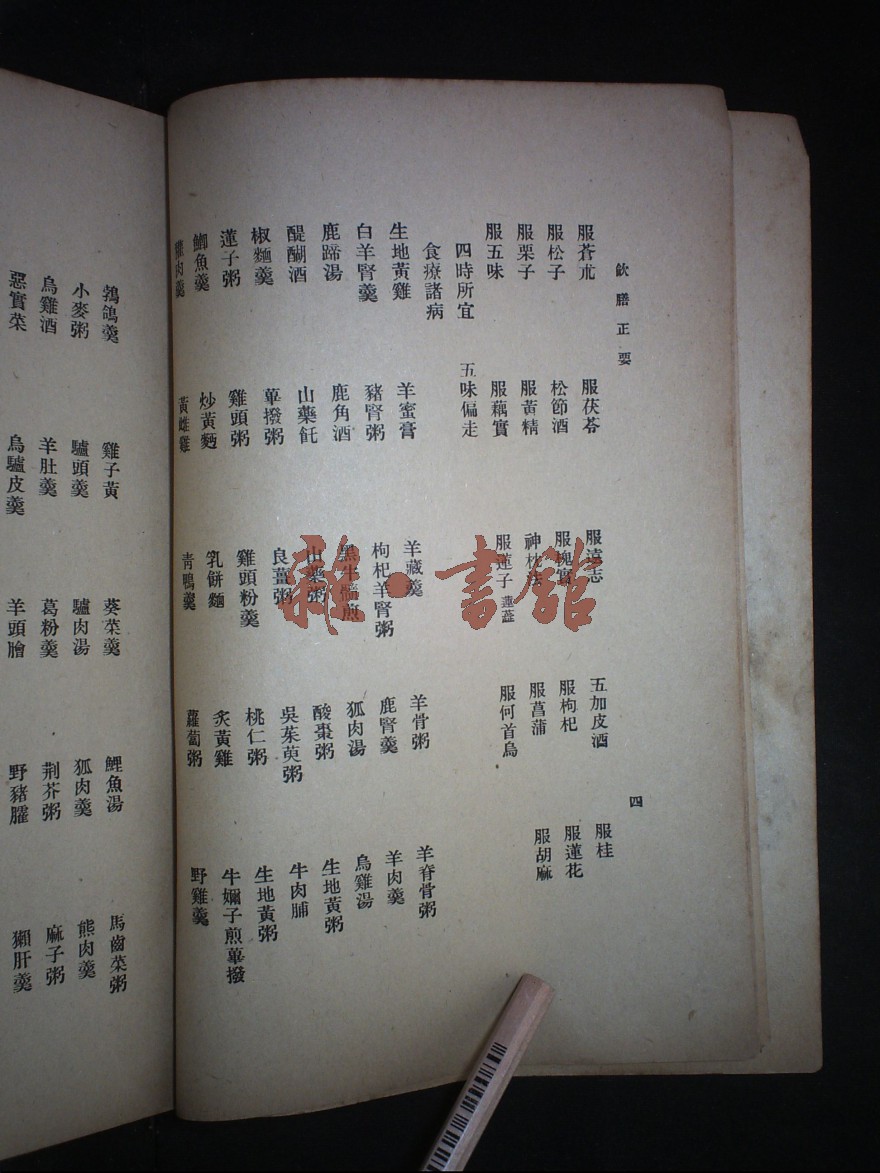 飲膳正要 四
服蒼朮 服茯苓 服遠志 五加皮酒 服桂
服松子 松節酒 服槐實 服枸杞 服蓮花
服栗子 服黃精 神枕法 服菖蒲 服胡麻
服五味 服藕實 服蓮子 蓮蕋 服何首烏
四時所宜 五味偏走
食療諸病
生地黃雞 羊蜜膏 羊藏羹 羊骨粥 羊脊骨粥
白羊腎羹 豬腎粥 枸杞羊腎粥 鹿腎羹 羊肉羹
鹿蹄湯 鹿角酒 黑牛髓煎 狐肉湯 烏雞湯
醍醐酒 山藥飥 山藥粥 酸棗粥 生地黃粥
椒麵羹 蓽撥粥 良薑粥 吳茱萸粥 牛肉脯
蓮子粥 雞頭粥 雞頭粉羹 桃仁粥 生地黃粥
鯽魚羹 炒黃麵 乳餅麵 炙黃雞 牛嬭子煎蓽撥
肉羹 黃雌雞 青鴨羹 蘿蔔粥 野雞羹
鵓鴿羹 雞子黃 葵菜羹 鯉魚湯 馬齒菜粥
小麥粥 驢頭羹 驢肉湯 狐肉羹 熊肉羹
烏雞酒 羊肚羹 葛粉羹 荆芥粥 麻子粥
惡實菜 烏驢皮羹 羊頭膾 野豬臛 獺肝羹
雜·書館